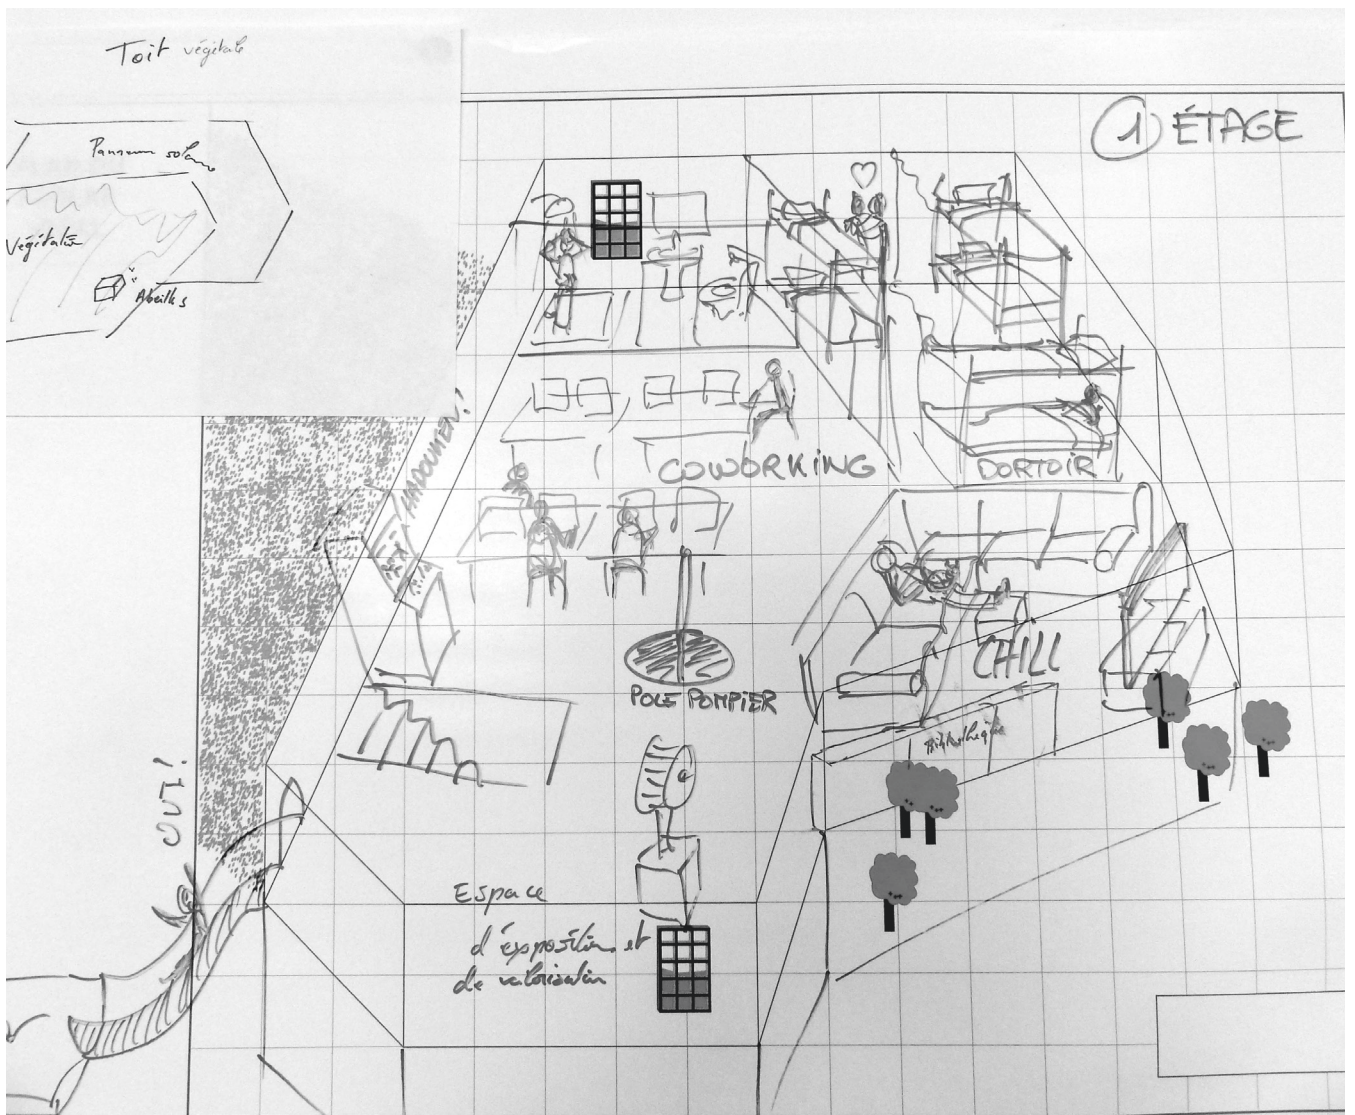 Toit végitale
Panneau solaire
Végitation
Abeilles
1 ÉTAGE
COWORKING
DORTOIR
CHILL
POLE POMPIER
Bibliotheque
OUT!
Espace
d'exposition et
de valorisation